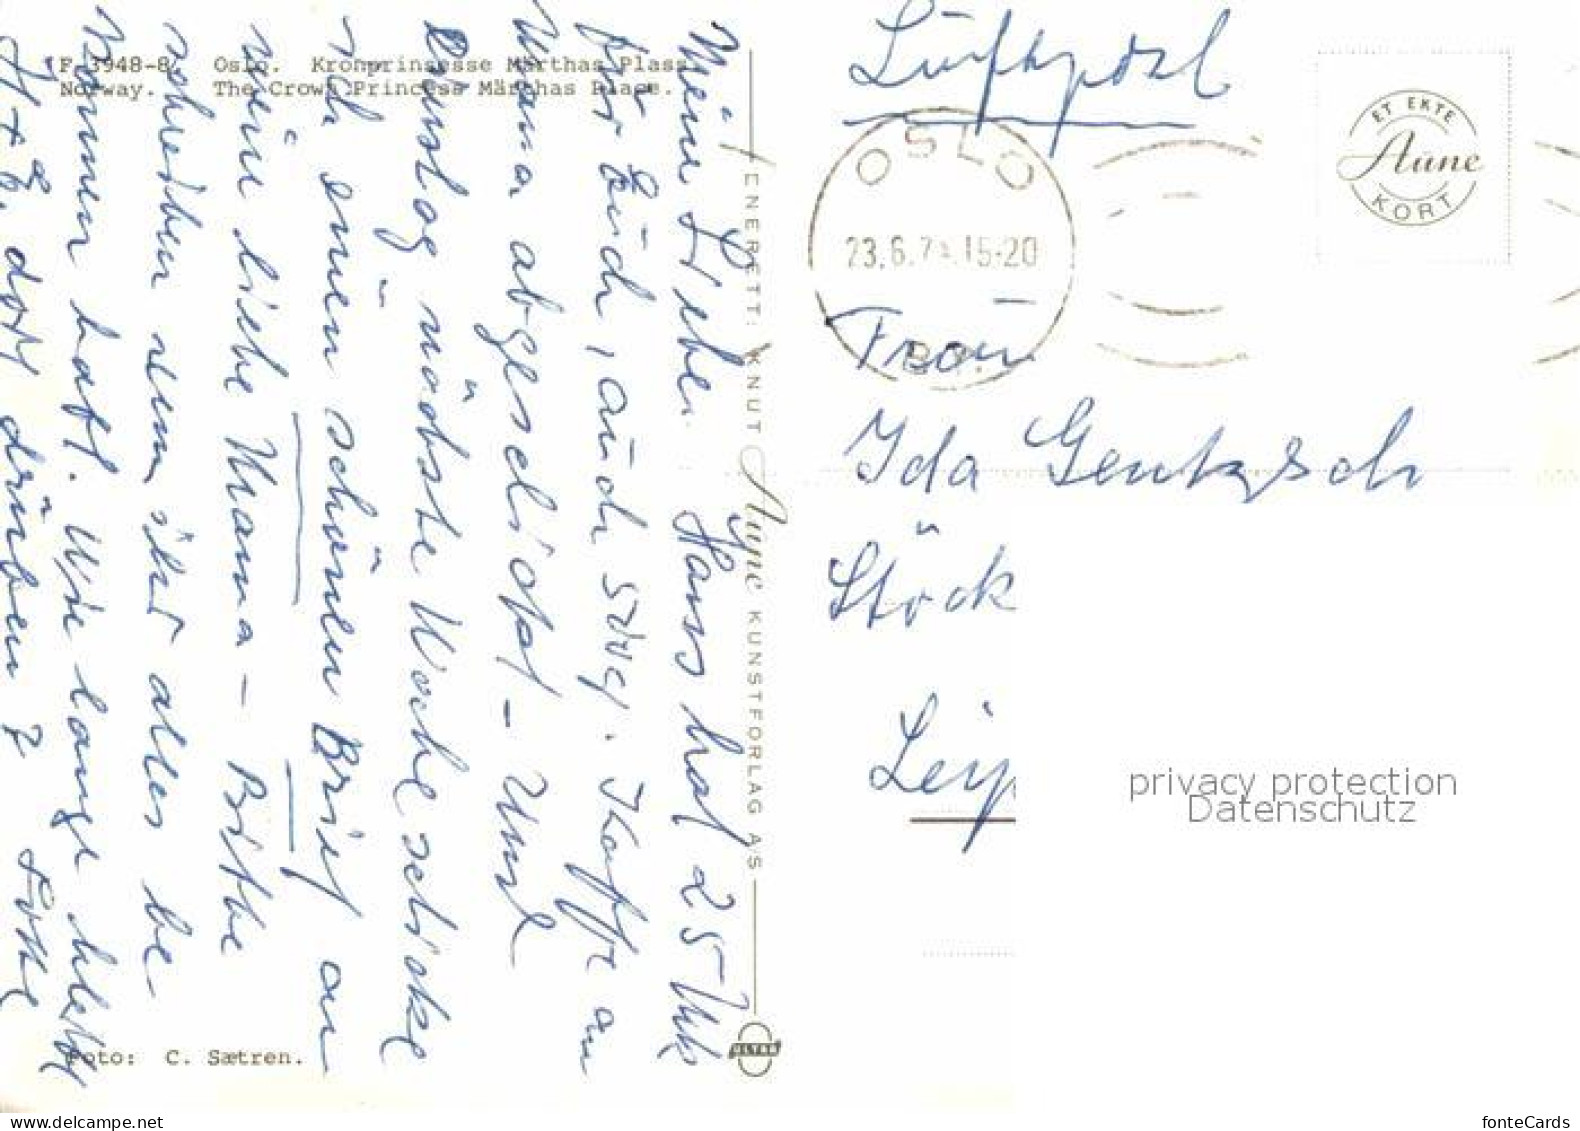 F-3948-8  Oslo. Kronprinsesse Märthas Plass.
Norway.  The Crown Princess Märthas Place.
Meine Liebe. Hans hat 25 Mk
für Euch, auch Kaffe an
Mama abgeschickt – Und
Samstag nächste Woche schicke
ich einen schönen Brief an
meine liebe Mama – Bitte
schreiben wenn ihr alles be-
kommen habt. Wie lange bleibt
Ihr dort drüben?
Foto: C. Sætren.
ENERETT: KNUT Aune KUNSTFORLAG A/S
MITTET
Luftpost
OSLO
23.6.7 15-20
BR.
ET EKTE
Aune
KORT
Frau
Ida Gentzsch
Stöck
Leip
privacy protection
Datenschutz
fonteCards